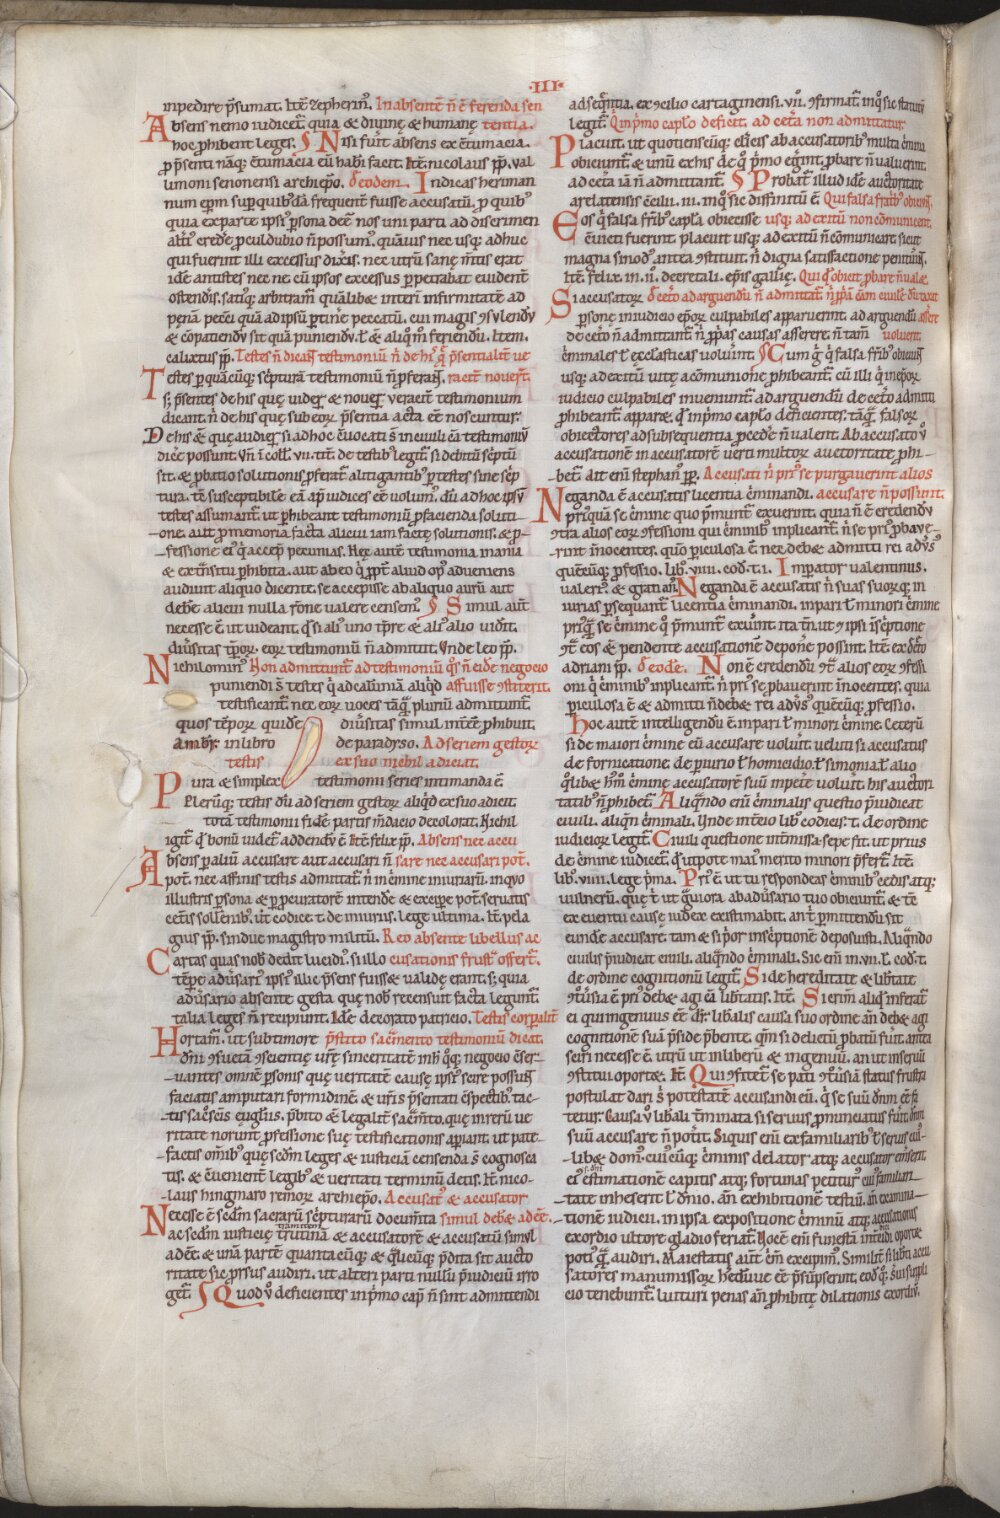 ·III·
inpedire p̄sumat. Itē zepherin᷒. In absentē n̄ ē ferenda sen
Absens nemo iudicet᷑. quia & diuinę & humanę tentia.
hoc ꝓhibent leges. Nisi fuīt absens ex c̄tumacia.
ꝓ p̄senti nāq; c̄tumacia eū hab̄i facit. Itē nicolaus pp̄. val
limoni senonensi archiep̄o. De eodem. Indicas heriman
num ep̄m suꝑ quibꝰdā frequent̄ fuisse accusatū. ꝓ quibꝰ
quia ex parte ipsiꝰ ꝑsona deē nos uni parti ad discrimen
alt̄iꝰ credēe ꝓculdubio n̄ possumꝰ. quāuis nec usq; adhuc
qui fuerint illi excessus dixīs. nec utrū sanę m̄tis erat
idē antistes nec ne. cū ipsos excessus ꝑpetrabat euident̄
ostendis. satiꝰq; arbitram᷑ quālibæ interī infirmitatē ad
pęnā peccī quā ad ipsū ꝑtīnꝫ peccatū. cui magis ↄsulendū
& cōpatiendū sit quā puniendū. t̄ & aliq̊ m̊ feriundū. Item.
calixtus pp̄. Testes n̄ dicaꝫ testimoniū n̄ de hiꝰ q̄ p̄sentialit̄ ue
Testes ꝑ quācūq; sc̄pturā testimoniū n̄ ꝓferaꝫ. racit̄ nouer̄t.
sꝫ p̄sentes de his quę uider̄ & nouer̄ veracit̄ testimonium
dicant. n̄ de his quę sub eoꝝ p̄sentia acta eē noscunt᷑.
De his & quę audier̄ si ad hoc c̄uocati s̄ in ciuili cā testimoniū
dicē possunt. Vn̄ ī coll᷒. vii. tit̄. de testibꝰ legit᷑. si debitū sc̄ptū
sit. & ꝓbatio solutionis ꝓferat᷑ a litigantibꝰ ꝑ testes sine sc̄p
tura. tē susceptibile eā apꝰ iudices eē volumꝰ. dū ad hoc ipsū
testes assumant᷑. ut ꝑhibeant testimoniū ꝓ facienda soluti
one. aut ꝓ memoria facta alicui iam factę solutionis. & ꝓ
fessione eiꝰ q̄ accep̄ pecunias. Hęc autē testimonia inania
& extnsitu ꝑhibita. aut ab eo q̄ ꝓpt̄ aliud opꝰ adueniens
audiunt aliquo dicente. se accepisse ab aliquo aurū aut
debēe alicui nulla r̄one valere censemꝰ. Simul aut̄
necesse ē. ut uideant. q̄ si aliꝰ uno tp̄re & aliꝰ alio vidīt.
diūsitas tꝑoꝝ. eoꝝ testimoniū n̄ admittit. Vnde leo pp̄.
Nichilominꝰ Non admittunt᷑ ad testimoniū qꝰi n̄ eidē negocio
puniendi s̄ testes q̄ ad calūniā aliq̄d affuisse ↄstiterit.
testificant᷑. nec eoꝝ uoces tāq̄ plurīū admittunt᷑
quos tēpoꝝ quidē diūsitas simul int̄eē ꝓhibuit.
ambr̄. in libro de paradyso. Ad seriem gestoꝝ
testis ex suo nichil adiciat.
Pura & simplex testimonii series intimanda ē.
Plerūq; testis dū ad seriem gestoꝝ aliq̄d ex suo adicit.
totā testimonii fidē partis m̄dacio decolorat. Nichil
igit᷑ q̄ bonū uidet᷑ addendū ē. Itē felix pp̄. Absens nec accu
Absens ꝑ aliū accusare aut accusari n̄ sare nec accusari pot̄.
pot̄. nec affinis testis admittat᷑. n̄ in c̄mine iniuriarū. in quo
illustris ꝑsona & ꝑ ꝓcuratorē intendē & exciꝑe pot̄. seruatis
cet̄is sollēnibꝰ. ut̄ codice. t. de iniuriis. lege ultima. It̄. pela
gius pp̄. sindue magistro militū. Reo absente libellus ac
Cartas quas nob̄ dedit lucidiꝰ. si illo cusationis frustꝰ offert᷑.
tēꝑe adūsariꝰ ipsiꝰ illic p̄sens fuissæ validę erant. sꝫ quia
adūsario absente gesta quę nob̄ recensuit facta legunt᷑.
talia leges n̄ recipiunt. Idē decorato patricio. Testis corꝑalit̄
Hortam᷑. ut subtimore p̄stito sac̄mento testimoniū dicat.
dn̄i ↄsuetā ↄscientię ur̄ę sinceritatē inh q̄q; negocio c̄ser
uantes omnē ꝑsonis quę veritatē causę ipsiꝰ scire possuꝫ
faciatis amputari formidinē. & ur̄is p̄sentati c̄spectibꝰ tac
tis sac̄sc̄īs euḡliis. p̄bito & legalit̄ sac̄mto. que in rerū ve
ritate norunt ꝓfessione suę testificationis aꝑiant. ut pate
factis om̄ibꝰ quę sc̄dm leges & iusticiā censenda s̄ cognosca
tis. & c̄uenient̄ legibꝰ & veritati terminū detis. Itē nico
laus hingmaro remoꝝ archiep̄o. Accusatꝰ & accusator
Necesse ē sc̄dm sacrarū sc̄pturarū documīta simul debæ adeē.
ac sc̄dm iusticię trutinā & accusatorē & accusatū simul
adeē. & unā partē quantacūq; & q̄licūq; p̄dita sit aucto
ritate sic ꝓrsus audiri. ut alteri parti nullū p̄iudiciū irro
get᷑. Quod ꝟ deficientes in p̄mo cap̄ n̄ sint admittendi
ad seq̄ntia. ex ↄcilio cartaginensi. vii. ↄfirmat᷑. in q̊ sic statutū
legit᷑. Q̄ in p̄mo caplo deficit. ad cet̄a non admittatur.
Placuit. ut quotienscūq; cl̄icis ab accusatoribꝰ multa c̄mina
obiciunt᷑. & unū ex his de q̊ p̄mo eḡint ꝓbare n̄ valuerint.
ad cet̄a iā n̄ admittant᷑. Probat᷑ illud idē auctoritate
arelatensis c̄cilii. iii. in q̊ sic diffinitū ē. Qui falsa fratribꝰ obiciuꝫ.
Eos q̄ falsa fr̄ibꝰ capla obiecisse usq; ad exitū non cōmunicent.
c̄uicti fuerint. placuit usq; ad exitū n̄ cōmunicare. sicut
magna sinodꝰ antea ↄstituit. n̄ digna satisfactione penituīt.
Itē. felix. in. ii. decretali. ep̄is gallię. Qui q̄ obicit ꝓbare n̄ ualæ.
Si accusatoꝝ de cet̄o ad arguendū n̄ admittat᷑. n̄ ꝓp̄ā cām ciuilē dūtaxat
ꝑsonę in iudicio ep̄oꝝ culpabiles apparuerint. ad arguendū assere
de cet̄o n̄ admittant᷑. n̄ ꝓp̄as causas asserere. n̄ tam̄ voluerit.
c̄minales t̄ ęccl̄asticas voluīnt. Cum ḡ q̄ falsa fr̄ibꝰ obiciuꝫ
usq; ad exitū vitę a cōmunione ꝓhibeant᷑. cū illi q̄ in ep̄oꝝ
iudicio culpabiles inueniunt᷑. ad arguendū de cet̄o admitti
ꝓhibeant᷑. apparæ. q̄ in p̄mo caplo deficientes. tāq̄ falsoꝝ
obiectores ad subsequentia ꝓcedē n̄ valent. Ab accusato ꝟ
accusationē in accusatorē verti multoꝝ auctoritate ꝓhi
bet᷑. Ait eni stephanꝰ pp̄. Accusati n̄ priꝰ se purgauerint alios
Neganda ē accusatis licentia c̄minandi. accusare n̄ possunt.
priꝰquā se c̄mine quo p̄munt᷑ exuerint. quia n̄ ē credendū
ↄtra alios eoꝝ ↄfessioni qui c̄minibꝰ implicant᷑. n̄ se priꝰ ꝓbaue
rint īnocentes. quō ꝑiculosa ē. nec debæ admitti rei adūsꝰ
quēcūq; ꝓfessio. libꝰ. viiii. eod̄. t. i. Imperator valentinus.
valerꝰ. & gratianꝰ. Neganda ē accusatis n̄ suas suoꝝq; in
iurias ꝑsequant᷑. licentia c̄minandi. in pari t̄ minori c̄mine
priꝰq̄ se c̄mine q̊ p̄munt᷑ exuīnt. ita tn̄. ut & ipsi īsc̄ptionē
ↄt̄ eos & pendente accusationē deponē possint. Itē ex dc̄o
adriani pp̄. De eodē. Non ē credendū ↄt̄ alios eoꝝ ↄfessi
oni q̄ c̄minibꝰ implicant᷑. n̄ priꝰ se ꝓbauerint īnocentes. quia
ꝑiculosa ē & admitti n̄ debæ rei adūsꝰ quēcūq; ꝓfessio.
Hoc autē intelligendū ē. in pari t̄ minori c̄mine. Ceterū
si de maiori c̄mine eū accusare voluīt. veluti si accusatus
de fornicatione. de ꝑiurio t̄ homicidio. t̄ simonia. t̄ alio
q̊libæ hꝰm c̄mine accusatorē suū inpetē voluīt. his auctori
tatibꝰ n̄ ꝓhibet᷑. Aliq̄ndo eni c̄minalis questio p̄iudicat
ciuili. aliq̄n c̄minali. Vnde in t̄cio libꝰ codicis. t. de ordine
iudicioꝝ legit᷑. Ciuili questione int̄missa. sepe fit. ut prius
de c̄mine iudicet᷑. q̄ utpote maiꝰ merito minori p̄fert᷑. Itē.
libꝰ. viiii. lege p̄ma. Priꝰ ē. ut tu respondeas c̄minibꝰ cedis atq;
vulnerū. quę t̄ ut g̊uiora ab adūsario tuo obiciunt᷑. & tē
ex euentu causę iudex existimabit. an t̄ ꝑmittendū sit
eundē accusare. tam & si p̄or insc̄ptionē deposuisti. Aliq̄ndo
ciuilis p̄iudicat ciuili. aliq̄ndo c̄minali. Sic eni in. vii. t̄. eod̄. t.
de ordine cognitionū legit᷑. Si de hereditate & libtate
ↄtūsia ē. priꝰ debæ agi cā lib̄tatis. Itē. Si crim̄ aliqꝰ inferat᷑
ei qui ingenuus eē dr̄. libalis causa suo ordine an̄ debæ agi
cognitionē suā p̄side p̄bente. qm̄ si delictū ꝓbatū fuīt. antea
sciri necesse ē. utrū ut in liberū & ingenuū. an ut in seruū
ↄstitui oportæ. It̄. Qui ↄfitet᷑ se pati ↄtūsiā status frustra
postulat dari s̄ potestatē accusandi eū. q̄ se suū dn̄m eē fa
tetur. Causa ꝟ libali t̄minata si seruus ꝓnunciatus fuīt. dnm̄
suū accusare n̄ poīt. Siquis eni ex familiaribꝰ t̄ seruis cui
libæ domꝰ. cuiꝰcūq; c̄minis delator atq; accusator em̄serit.
eiꝰ estimationē capitis atq; fortunas petitur cuiꝰ familiari
tate inheserit t̄ dn̄io. an̄ exhibitionē testiū. an̄ examina
tionē iudicii. in ipsa expositione c̄minū atq; accusationis
exordio ultore gladio feriat᷑. Vocē eni funestā intcidi oportæ
potiꝰ q̄ audiri. Maiestatis aut̄ c̄m excipimꝰ. Similit̄ si lib̄ti accu
satores manumissoꝝ heredūue eē p̄sūpserint. eod̄ q̊. s̄ui suppli
cio tenebunt᷑. luituri penas an̄ ꝓhibitę dilationis exordiū.